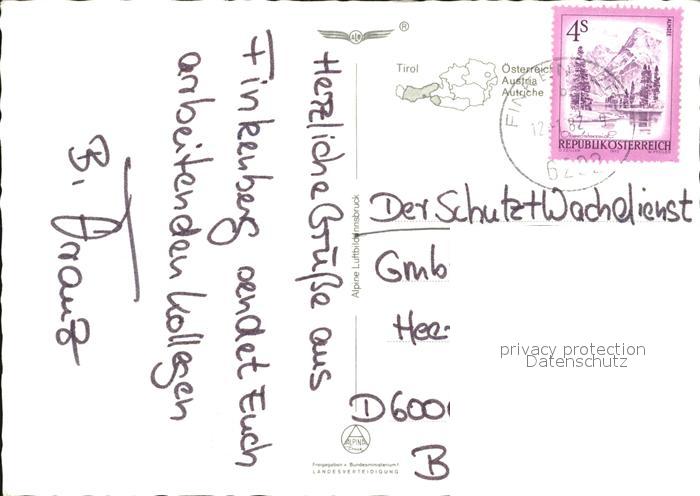 Herzliche Grüße aus
Finkenberg sendet Euch
arbeitenden Kollegen
B.
ALM
®
Tirol
Österreich
Austria
Autriche
4S
ALMSEE
REPUBLIK ÖSTERREICH
FIN
82
Alpine Luftbild Innsbruck
Der Schutz + Wachdienst
Gmb
Hee
D 600
B
privacy protection
Datenschutz
ALPINE
Freigegeben v. Bundesministerium f.
LANDESVERTEIDIGUNG